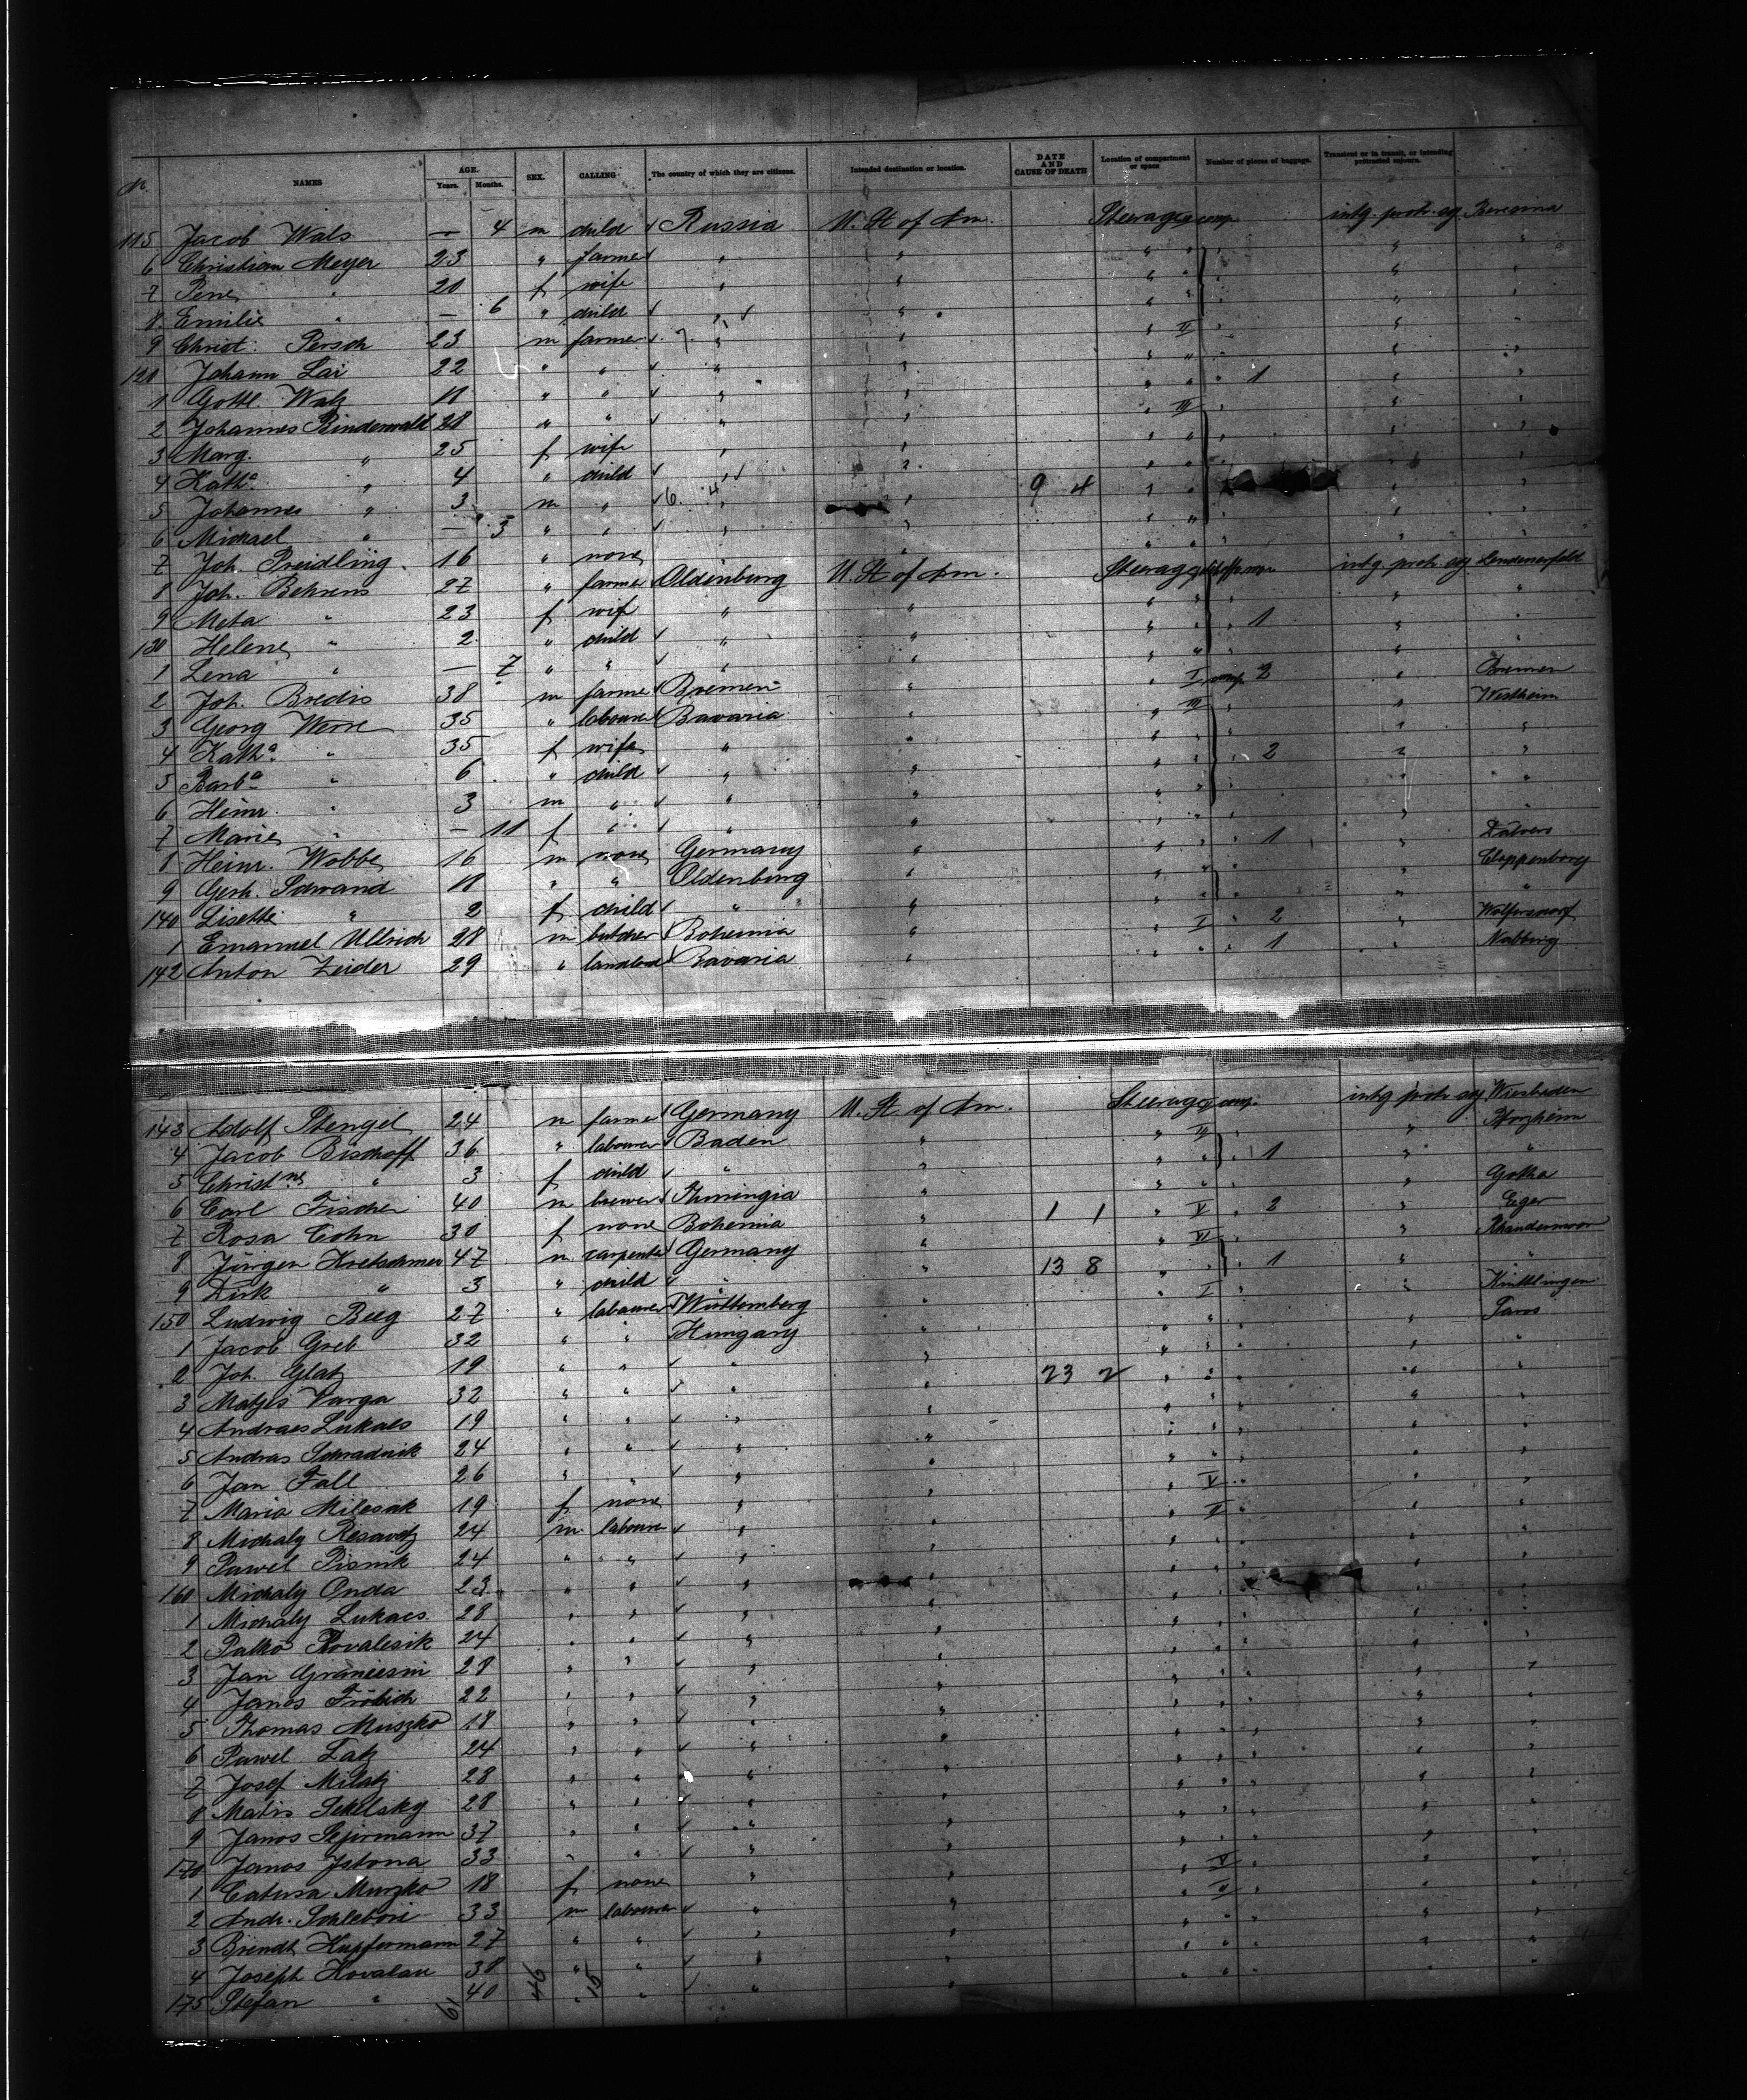 No. NAMES AGE. Years. Months. SEX. CALLING The country of which they are citizens. Intended destination or location. DATE AND CAUSE OF DEATH Location of compartment or space Number of pieces of baggage. Transient or in transit, or intending protracted sojourn.
115 Jacob Wals — 4 m child Russia U. St of Am. Steerage comp. intg. protr. soj Beresina
6 Christian Meyer 23 " farmer " "
7 " 20 f wife " "
8 Emilie " — 6 " child " "
9 Christ. Persch 23 m farmer " " II
120 Johann Lai 22 " " " "
1 Gottl. Walz 18 " " " " 1
2 Johannes Bindewald 28 " " " " III
3 Marg. " 25 f wife " "
4 Katha " 4 " child " "
5 Johannes " 3 m " 6. 4 " 9 4
6 Michael " — 3 " " " "
7 Joh. Preidling 16 " none "
8 Joh. Behrens 27 " farmer Oldenburg U. St of Am. Steerage intg. protr. soj
9 Meta " 23 f wife " "
130 Helene " 2 " child " " 1
1 Lena " — 7 " " " "
2 Joh. Bredis 38 m farmer Bremen " I comp 2 " Bremen
3 Georg Worn 35 " labourer Bavaria " III " Westheim
4 Katha " 35 f wife " "
5 Barba " 6 " child " " 2
6 Heinr. " 3 m " " "
7 Marie " — 11 f " " "
8 Heinr. Wobbe 16 m none Germany " 1
9 Gerh. Schwand 18 " " Oldenburg " Cloppenborg
140 Lisette " 2 f child " " "
1 Emanuel Ullrich 28 m butcher Bohemia " I 2 "
142 Anton Zeider 29 " landlord Bavaria " 1 " Nabburg
143 Adolf Stengel 24 m farmer Germany U. St. of Am. Steerage comp. intg protr soj Wiesbaden
4 Jacob Bischoff 36 " labourer Baden " III " Pforzheim
5 Christne " 3 f child " " 1 " "
6 Carl Fischer 40 m brewer Thuringia " " Gotha
7 Rosa Cohn 30 f none Bohemia " 1 1 V 2 " Eger
8 Jürgen Kretschmer 47 m carpenter Germany " VI " Rhaudermoor
9 Dirk " 3 " child " " 13 8 1 " "
150 Ludwig Beeg 27 " labourer Württemberg " I " Knittlingen
1 Jacob Greb 32 " " Hungary " "
2 Joh. Glatz 19 " " " " "
3 Matjis Varga 32 " " " " 23 2
4 Andraes Lukacs 19 " " " "
5 Andras Schradnik 24 " " " "
6 Jan Fall 26 " " " "
7 Maria Milesak 19 f none " " V
8 Michaly Resavotz 24 m labourer " " II
9 Pawel Pisnik 24 " " " "
160 Michaly Onda 23 " " " "
1 Michaly Lukacs 28 " " " "
2 Palko Kovalesik 24 " " " "
3 Jan Grancesni 28 " " " "
4 Janos Frölich 22 " " " "
5 Thomas Muszko 18 " " " "
6 Pawel Tatz 24 " " " "
7 Josef Milatz 28 " " " "
8 Matis Sekelsky 28 " " " "
9 Janos Sejirmann 37 " " " "
170 Janos Istona 33 " " " "
1 Catursa Muszko 18 f none " " V
2 Andr. Schlebori 33 m labourer " " II
3 Berndt Kupfermann 27 " " " "
4 Joseph Kovalan 38 " " " "
175 Stefan " 40 " " " "
61 46 15